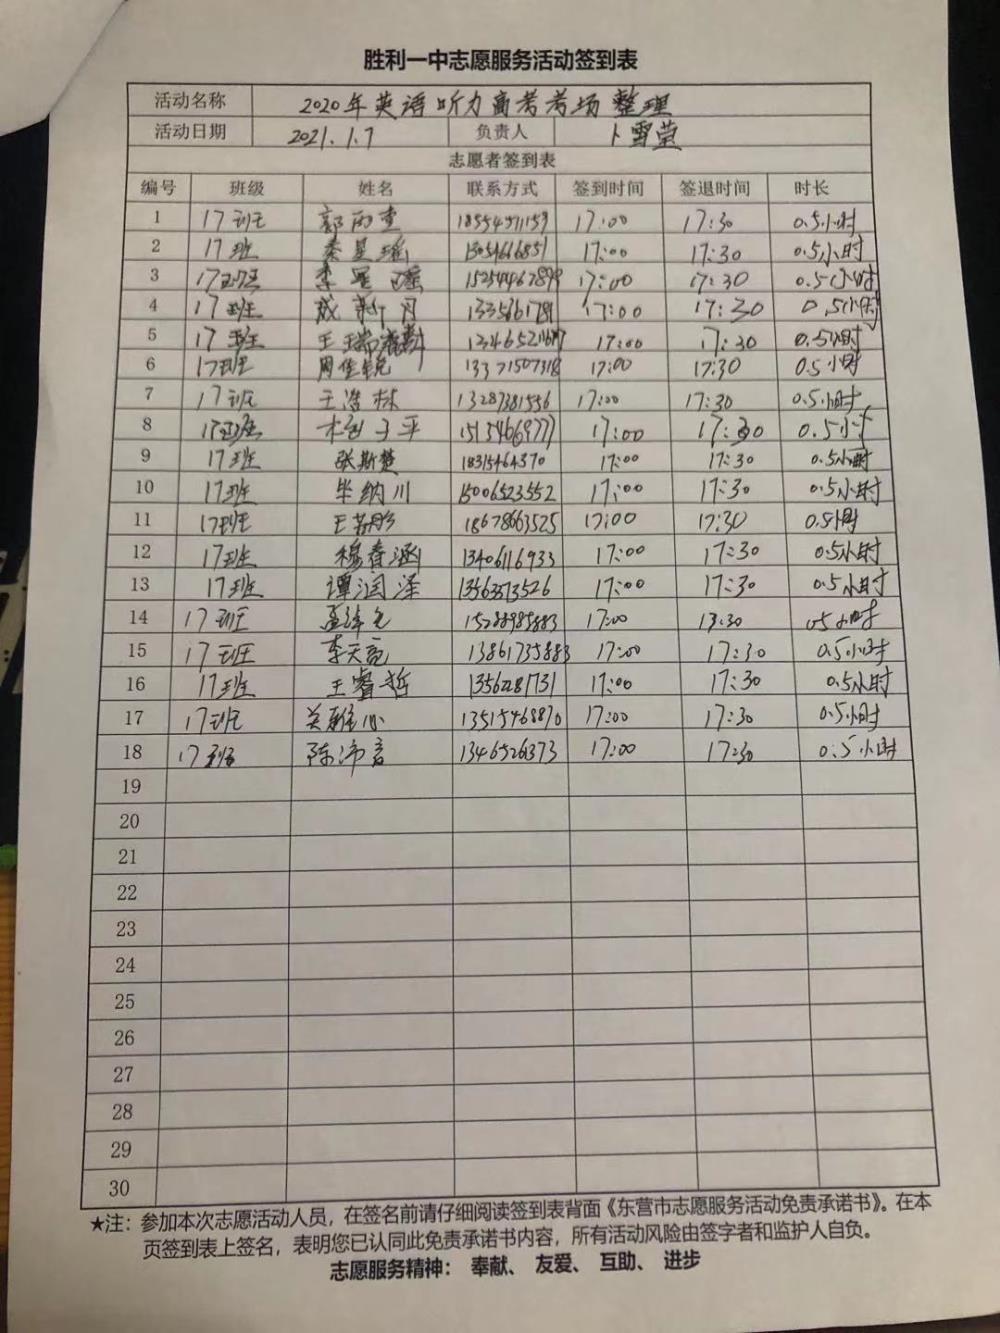 胜利一中志愿服务活动签到表
活动名称 2020年英语听力高考考场整理
活动日期 2021.1.7 负责人 卜雪莹
志愿者签到表
编号 班级 姓名 联系方式 签到时间 签退时间 时长
1 17班 郭雨 17:00 17:30 0.5小时
2 17班 秦星瑶 17:00 17:30 0.5小时
3 17班 李星瑶 17:00 17:30 0.5小时
4 17班 成新月 17:00 17:30 0.5小时
5 17班 王瑞 17:00 17:30 0.5小时
6 17班 周佳锐 13371507318 17:00 17:30 0.5小时
7 17班 王浩林 13287381556 17:00 17:30 0.5小时
8 17班 子平 17:00 17:30 0.5小时
9 17班 张斯楚 18315464370 17:00 17:30 0.5小时
10 17班 毕纳川 15006523552 17:00 17:30 0.5小时
11 17班 王若彤 18678663525 17:00 17:30 0.5小时
12 17班 穆春涵 13406116933 17:00 17:30 0.5小时
13 17班 谭润泽 13563373526 17:00 17:30 0.5小时
14 17班 17:00 17:30 0.5小时
15 17班 李天亮 13861735883 17:00 17:30 0.5小时
16 17班 王睿哲 13562281731 17:00 17:30 0.5小时
17 17班 13515468870 17:00 17:30 0.5小时
18 17班 陈沛言 1346526373 17:00 17:30 0.5小时
19
20
21
22
23
24
25
26
27
28
29
30
★注：参加本次志愿活动人员，在签名前请仔细阅读签到表背面《东营市志愿服务活动免责承诺书》。在本
页签到表上签名，表明您已认同此免责承诺书内容，所有活动风险由签字者和监护人自负。
志愿服务精神： 奉献、 友爱、 互助、 进步